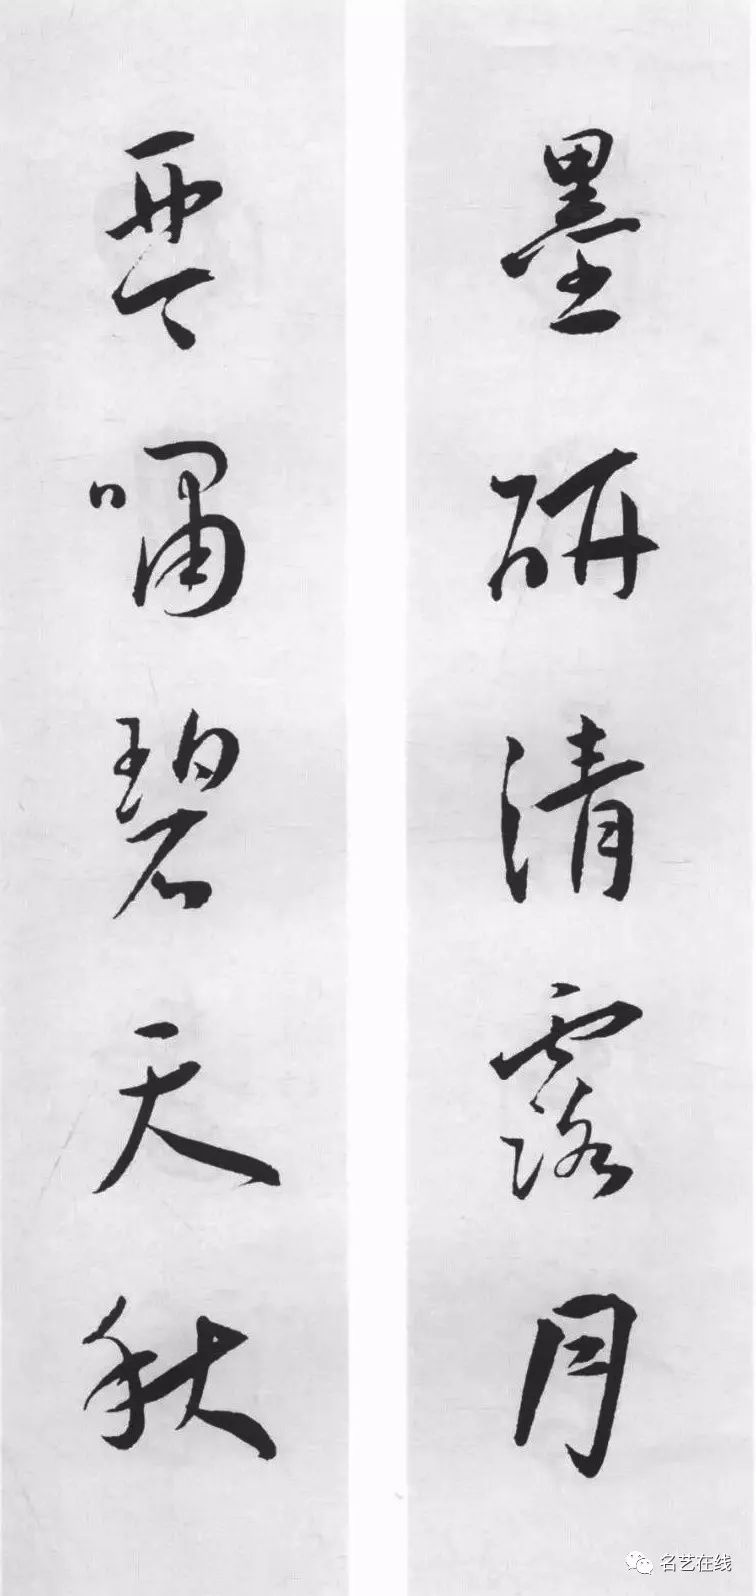 墨研清露月
琴啸碧天秋
名艺在线